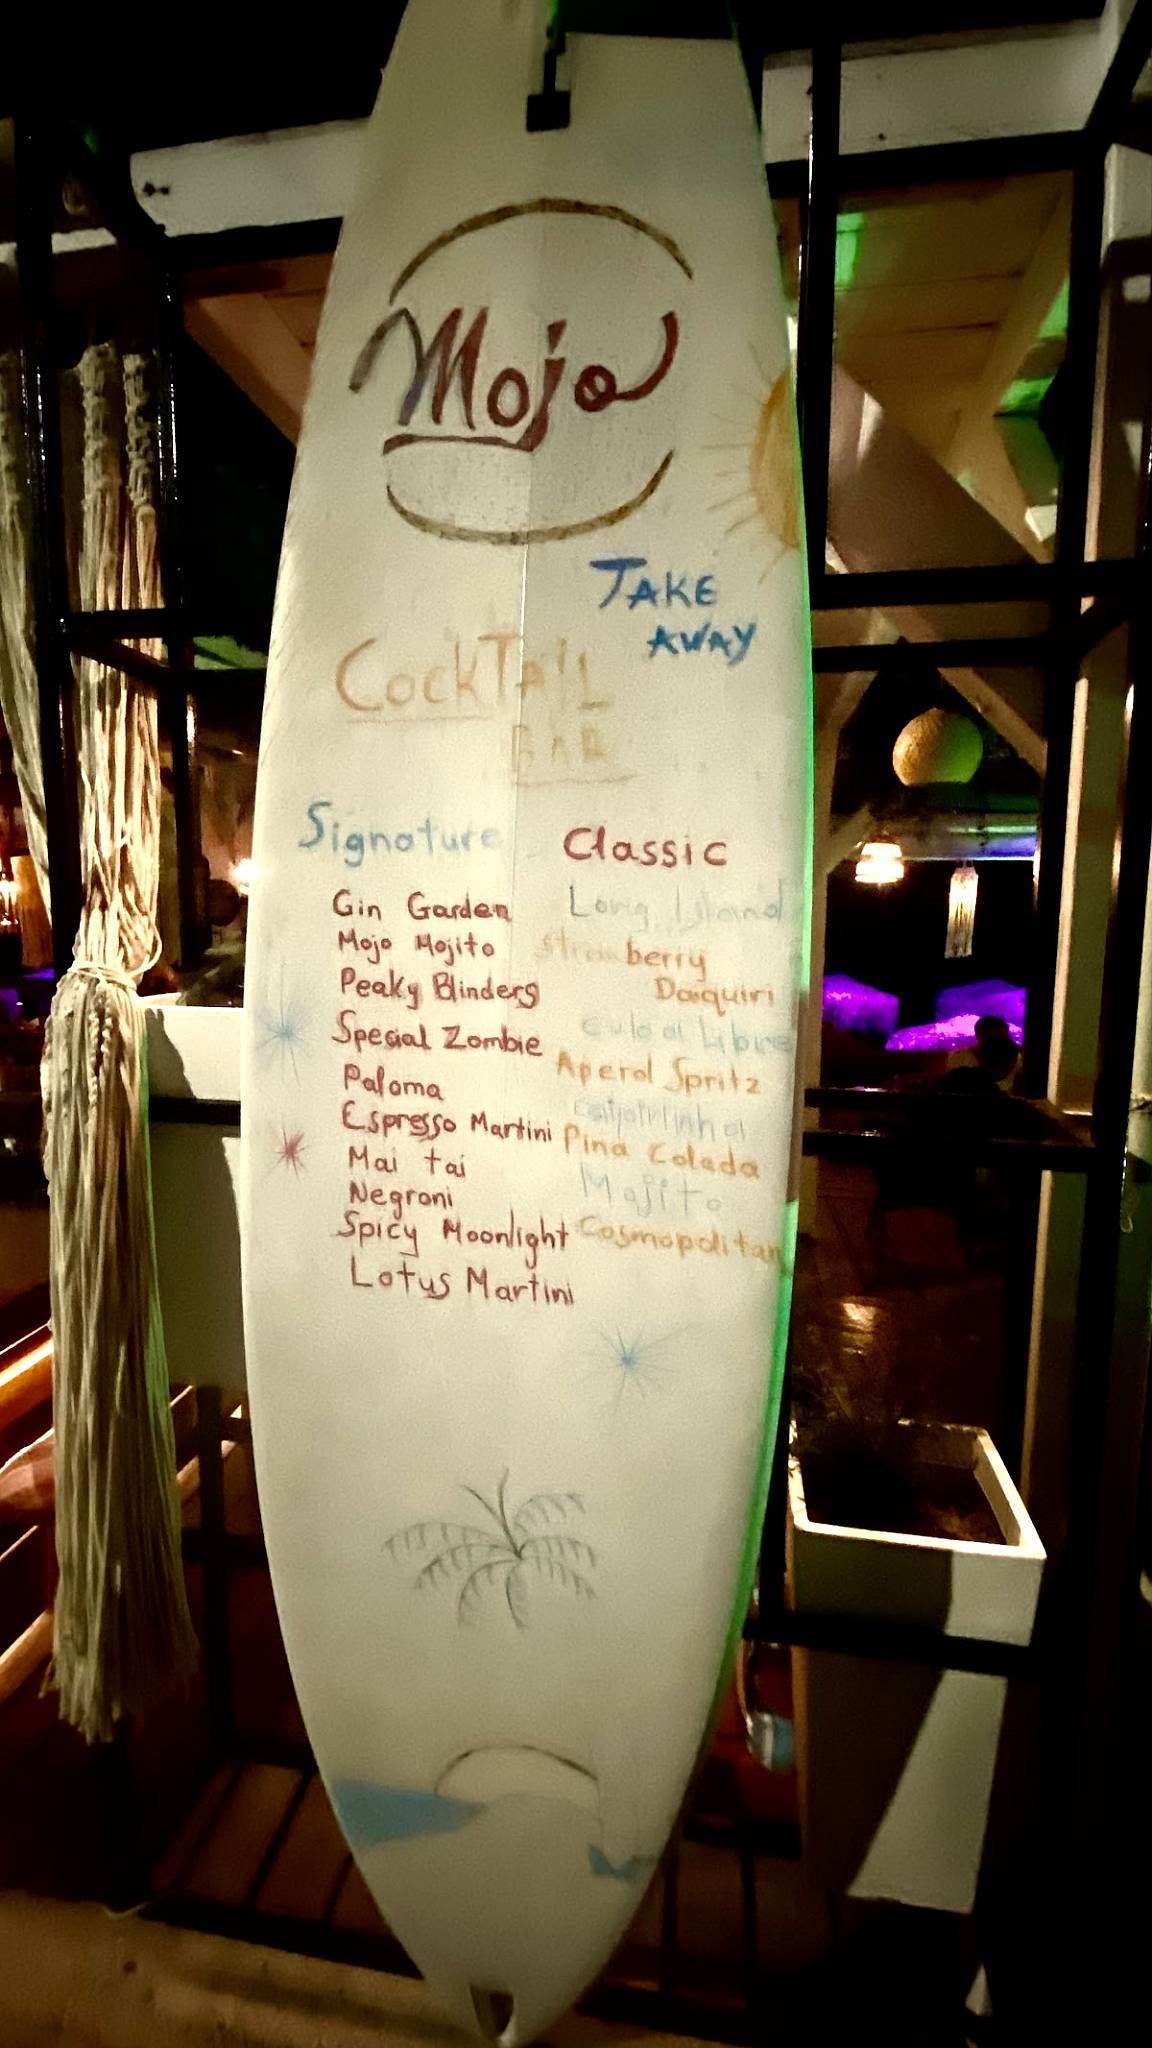 Mojo
TAKE
AWAY
CockTAiL
BAR
Signature
Gin Garden
Mojo Mojito
Peaky Blinders
Special Zombie
Paloma
Espresso Martini
Mai tai
Negroni
Spicy Moonlight
Lotus Martini
Classic
Long Island
Strawberry
Daiquiri
Cuba Libre
Aperol Spritz
Caipirinha
Pina Colada
Mojito
Cosmopolitan